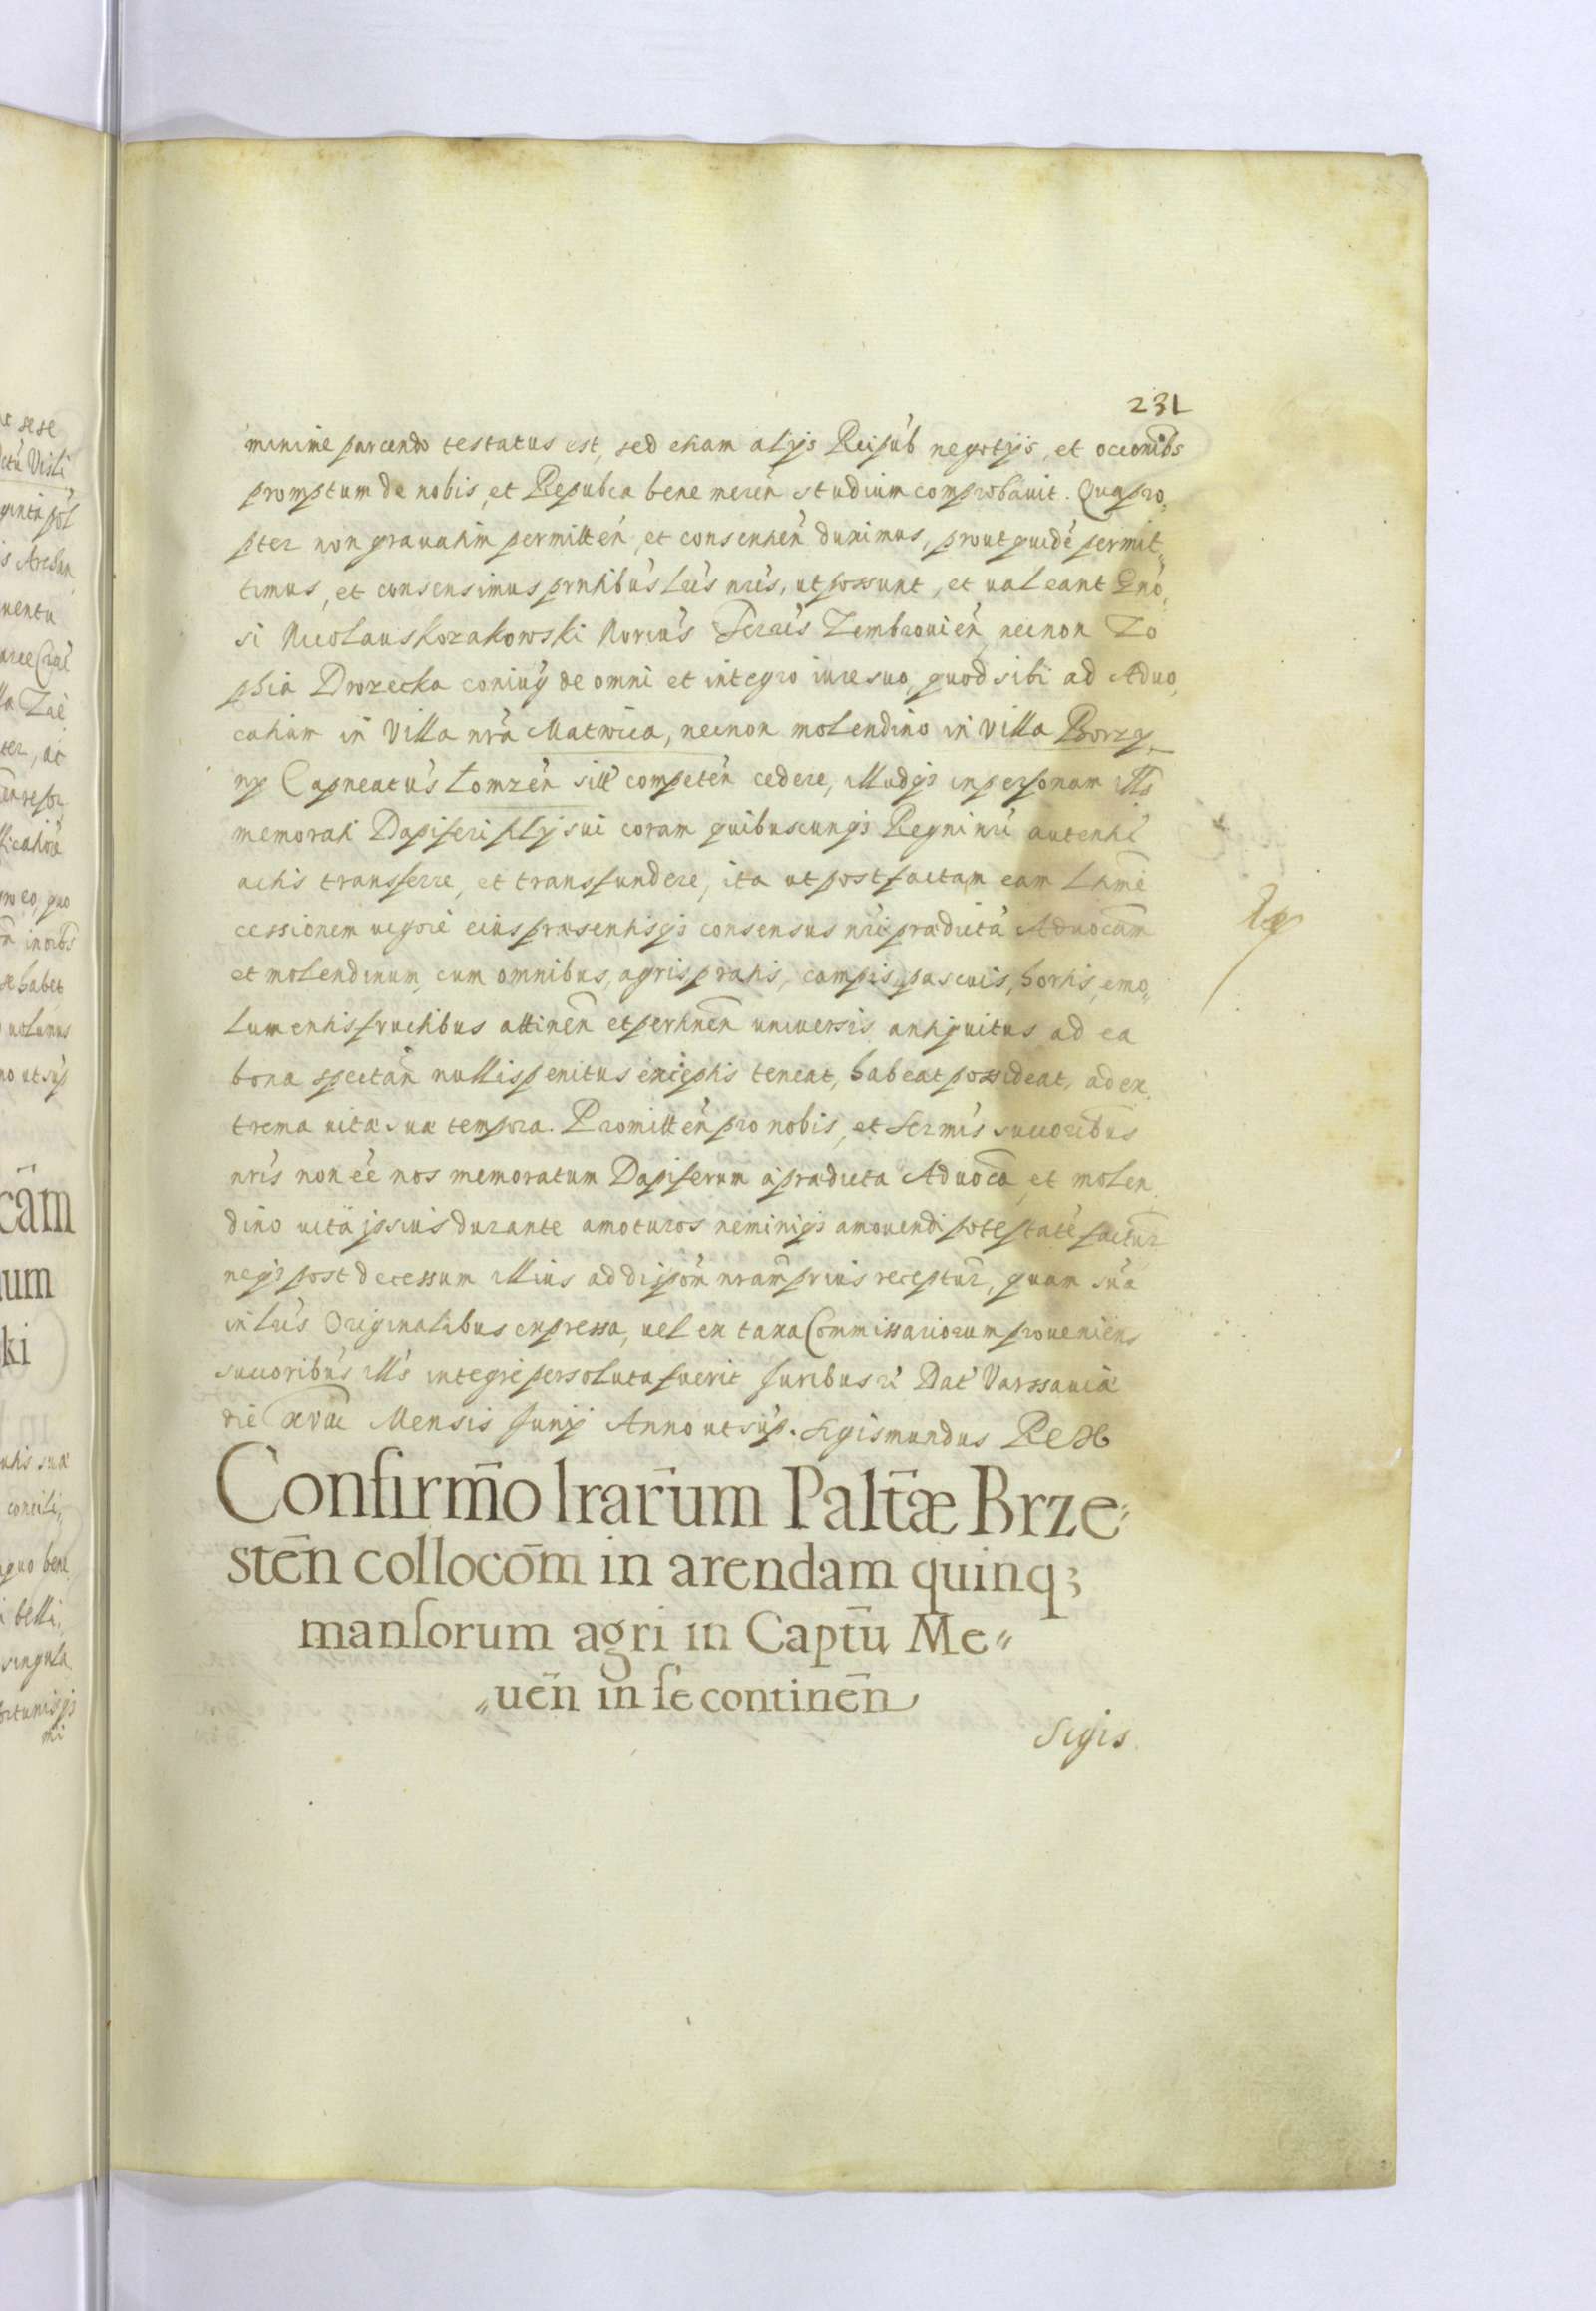 231
minime parcendo testatus est, sed etiam alijs Reipub negotijs, et occonibs
promptum de nobis, et Repubca bene meren studium comprobavit. Quapro,
pter non gravatim permitten, et consentien duximus, prout quidē permit,
timus, et consensimus prntibus Lris nris, ut possunt, et ualeant Gno,
si Nicolaus Kozakowski Norcus Terris Zembrouien, necnon Zo
phia Drozecka coniuḡ de omni et integro iure suo, quod sibi ad Aduo,
catiam in Villa nra Matwica, necnon molendino in Villa Borzy,
ny Capneatus Lomzen sitt competen cedere, illudqs in personam itts
memorati Dapiferi filij sui coram quibuscunqs Regni nri autenti
actis transferre, et transfundere, ita ut post factam eam Ltmē
cessionem uigore eius præsentisqs consensus nri prædictā Aduocam
et molendinum, cum omnibus, agris pratis, campis, pascuis, hortis, emo,
lumentis fructibus attinen et pertinen uniuersis antiquitus ad ea
bona spectan nullis penitus exceptis teneat, habeat possideat, ad ex,
trema uitæ suæ tempora. Promitten pro nobis, et Sermis succoribus
nris non ēe nos memoratum Dapiferum a prædicta Aduoca et molen,
dino uitā ipsius durante amoturos neminiqs amouendi potestatē factur
neqs post decessum illius ad dispom nram prius receptur, quam sua
in Lris Originalibus expressa, uel ex taxa Commissariorum proueniens
succoribus itts integre persoluta fuerit Juribus r Dat Varssauiæ
die xvııı Mensis Junij Anno ut sup. Sigismundus Rex
Confirmō lrarum Paltæ Brze,
stēn collocōm in arendam quinq;
mansorum agri in Captū Me„
„uēn in se continēn
Sigis